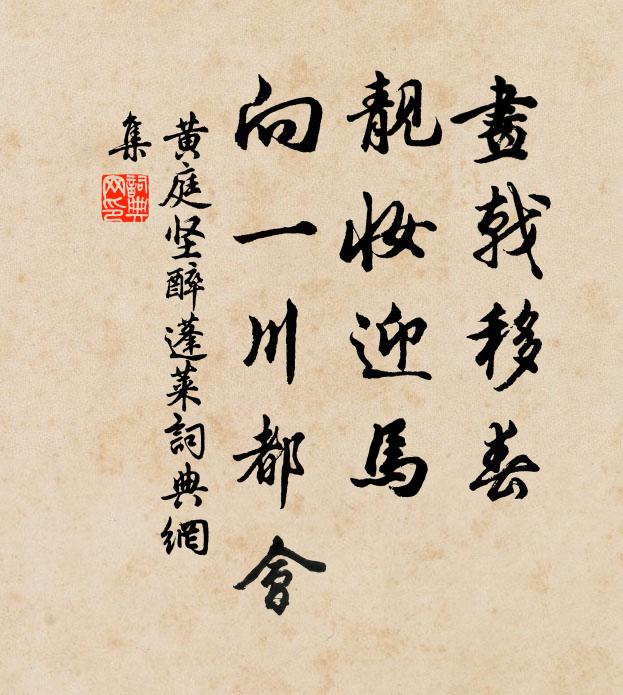 畫戟移春
靚妝迎馬
向一川都會
黄庭坚醉蓬莱詞典網
集
詞典
网印